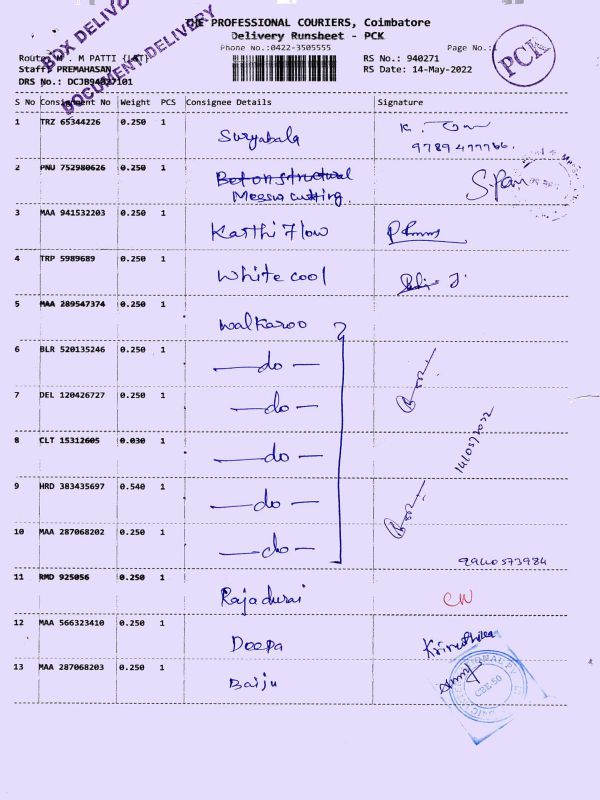 THE PROFESSIONAL COURIERS, Coimbatore
Delivery Runsheet - PCK
Phone No.:0422-3505555 Page No.:1
BOX DELIVERY
DOCUMENT DELIVERY
PCK
Route: M . M PATTI {LGT} RS No.: 940271
Staff: PREMAHASAN RS Date: 14-May-2022
DRS No.: DCJB94027101
S No Consignment No Weight PCS Consignee Details Signature
1 TRZ 65344226 0.250 1 Suryabala
2 PNU 752980626 0.250 1 Betonstructural
Messer cutting. Span
3 MAA 941532203 0.250 1 Karthi Flow
4 TRP 5989689 0.250 1 White cool
5 MAA 289547374 0.250 1 Walkaroo
6 BLR 520135246 0.250 1 —do—
7 DEL 120426727 0.250 1 —do—
8 CLT 15312605 0.030 1 —do—
9 HRD 383435697 0.540 1 —do—
10 MAA 287068202 0.250 1 —do—
9940573984
11 RMD 925056 0.250 1 Rajadurai CW
12 MAA 566323410 0.250 1 Deepa
13 MAA 287068203 0.250 1 Baiju
CBE-50